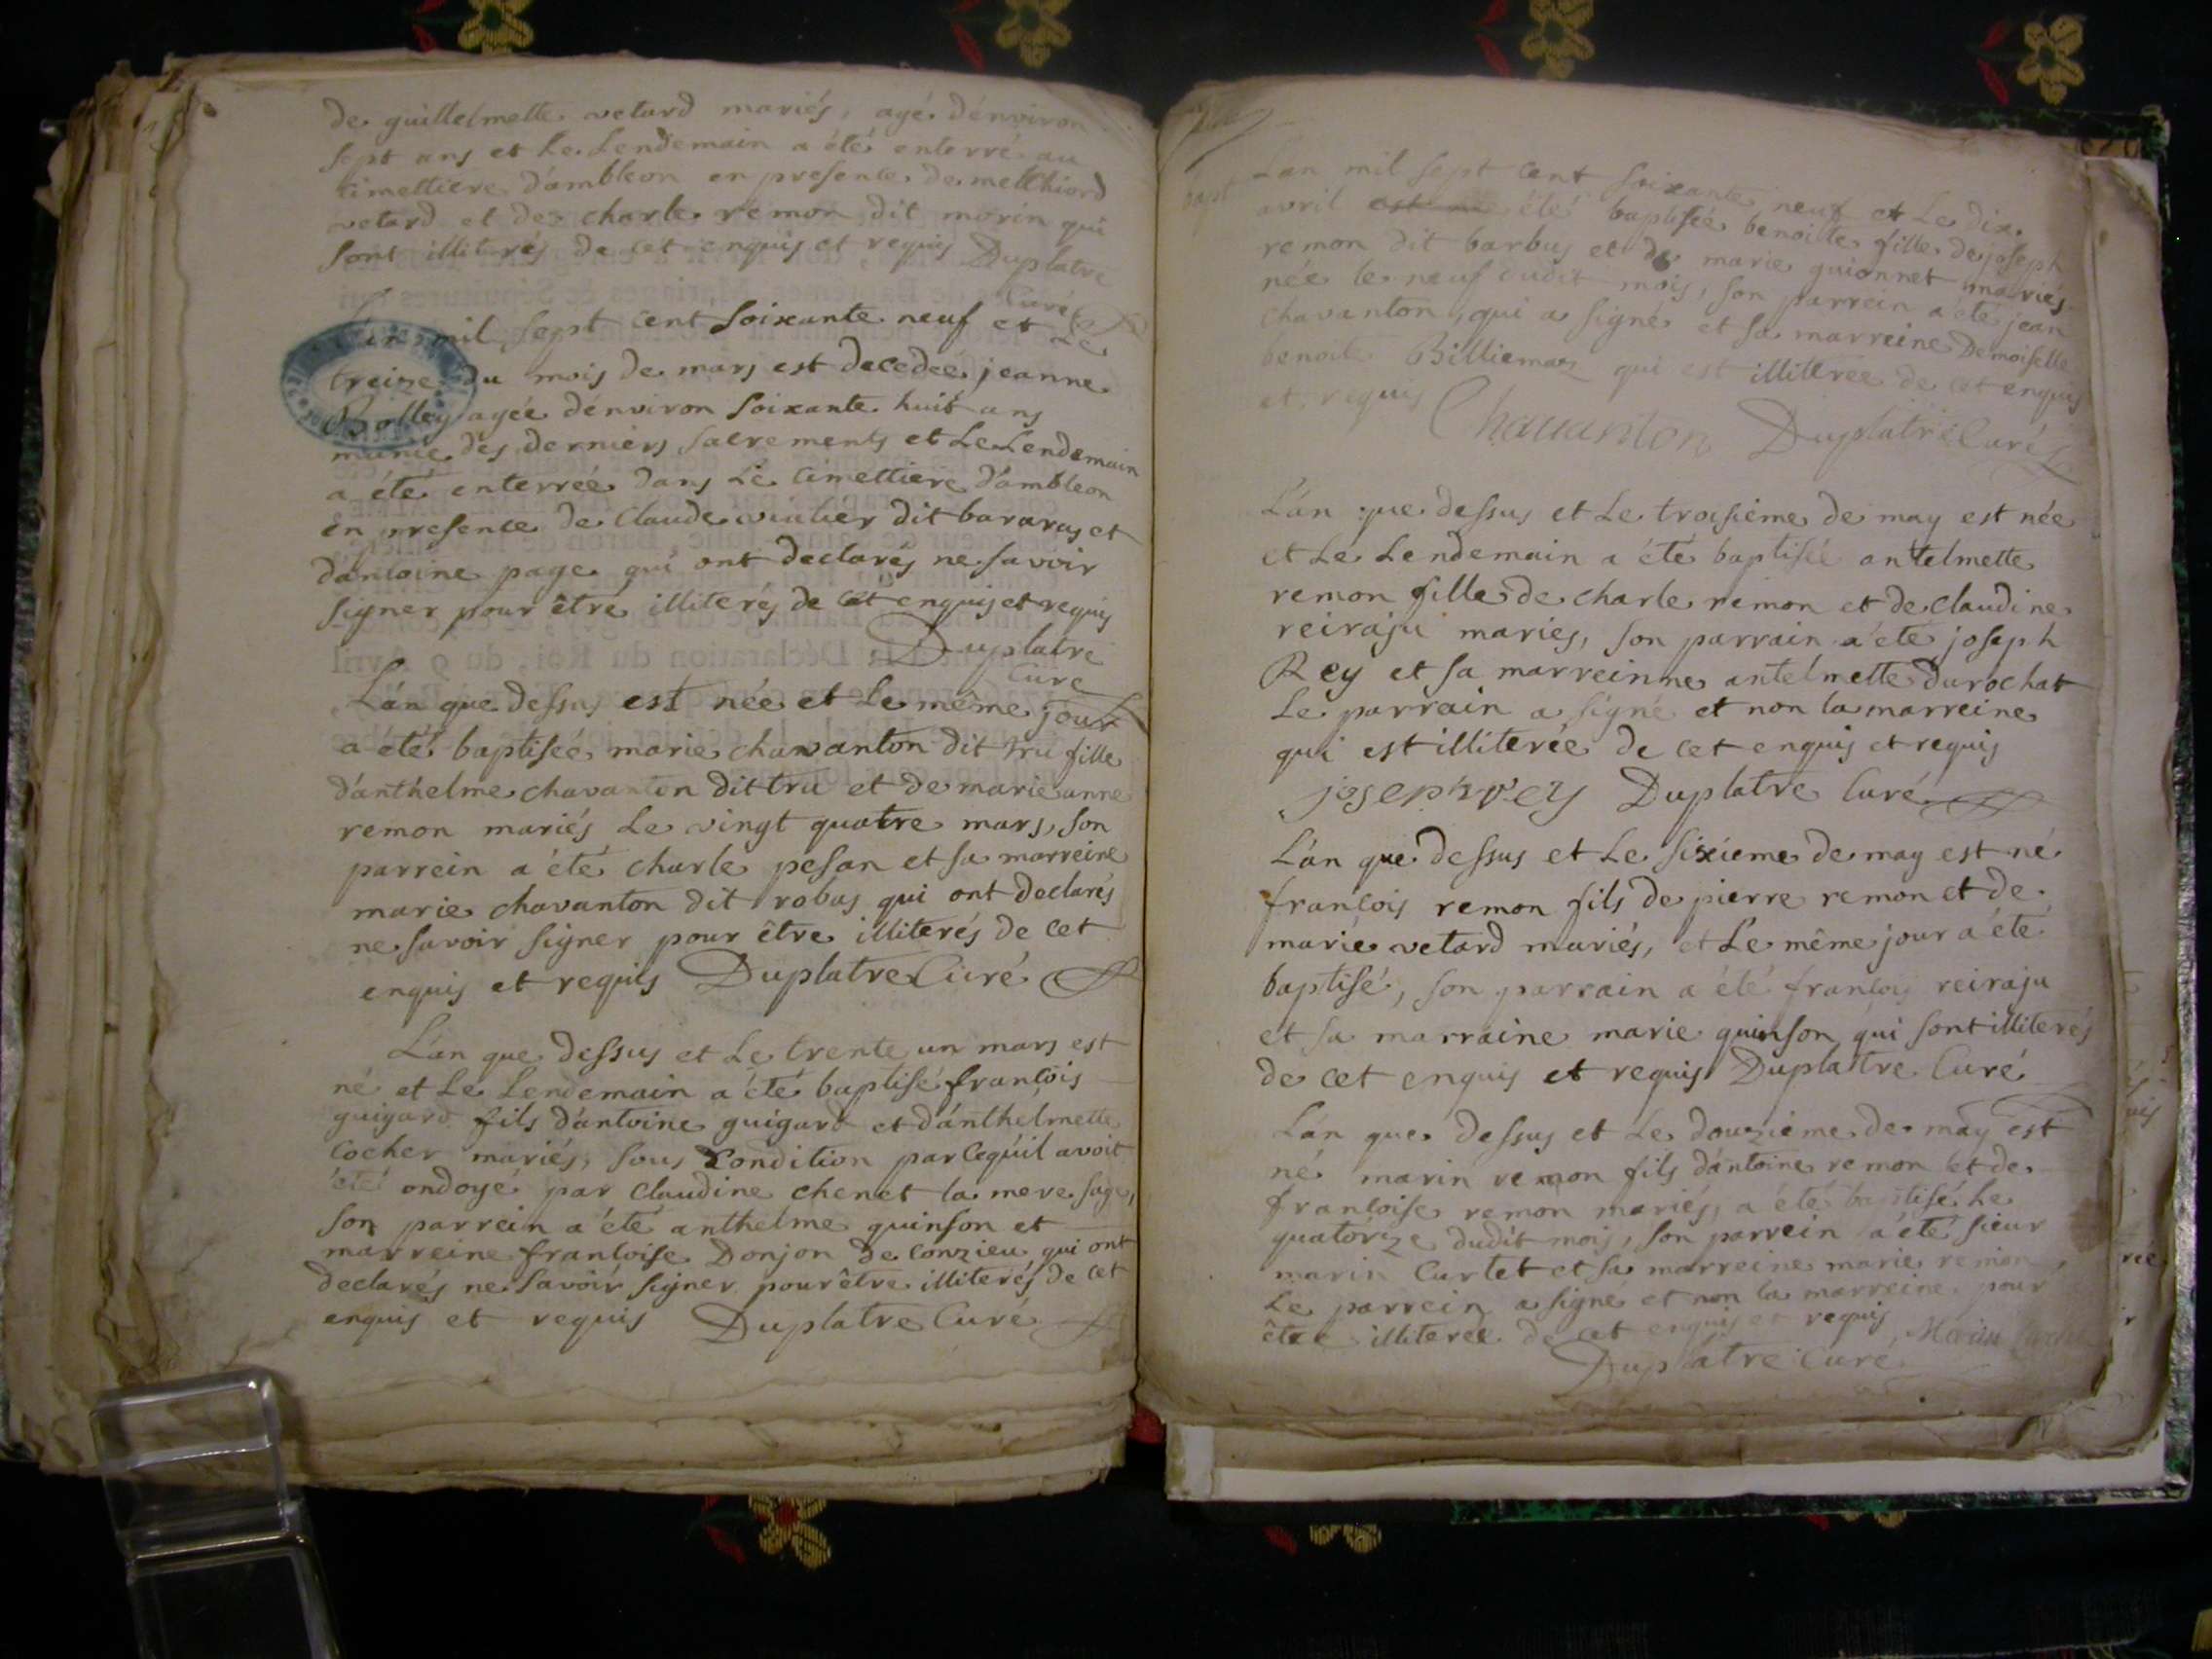 de guillelmette vetard mariés, agé d'environ
sept ans et le Lendemain a été enterré au
cimettiere d'ambleon en presence de melchiord
vetard et de charle remon dit morin qui
sont illiterés de cet enquis et requis Duplatre
Curé
L'an mil sept cent soixante neuf et Le
treize du mois de mars est decedeé jeanne
Bolley agée d'environ soixante huit ans
munie des derniers sacrements et Le Lendemain
a été enterrée dans Le cimettiere d'ambleon
en presence de Claude vulier dit bararas et
d'antoine page qui ont declarés ne savoir
signer pour être illiterés de cet enquis et requis
Duplatre
Curé
L'an que dessus est née et Le même jour
a été baptisée marie chavanton dit tru fille
d'anthelme chavanton dit tru et de marie anne
remon mariés Le vingt quatre mars, son
parrein a été charle pesan et sa marreine
marie chavanton dit robas qui ont declarés
ne savoir signer pour être illiterés de cet
enquis et requis Duplatre Curé
L'an que dessus et Le trente un mars est
né et Le Lendemain a été baptisé françois
guigard fils d'antoine guigard et d'anthelmette
Cocher mariés, sous Condition parcequ'il avoit
été ondoyé par Claudine chenet la mere sage,
son parrein a été anthelme quinson et
marreine françoise Donjon de Conzieu qui ont
declarés ne savoir signer pour être illiterés de cet
enquis et requis Duplatre Curé
bapt
L'an mil sept cent soixante neuf et Le dix
avril est né été baptisée benoite fille de joseph
remon dit barbus et de marie guionnet mariés
née le neuf dudit mois, son parrein a été jean
chavanton, qui a signé et sa marreine Demoiselle
benoite Billiemaz qui est illiterée de cet enquis
et requis Chauanton Duplatre Curé
L'an que dessus et Le troisième de may est née
et Le Lendemain a été baptisée antelmette
remon fille de charle remon et de claudine
reiraju mariés, son parrain a été joseph
Rey et sa marreinne antelmette durochat
Le parrain a signé et non la marreine
qui est illiterée de cet enquis et requis
joseph rey Duplatre Curé
L'an que dessus et Le sixieme de may est né
françois remon fils de pierre remon et de
marie vetard mariés, et Le même jour a été
baptisé, son parrain a été françois reiraju
et sa marraine marie quinson qui sont illiterés
de cet enquis et requis Duplatre Curé
L'an que dessus et Le douzième de may est
né marin remon fils d'antoine remon et de
françoise remon mariés, a été baptisé Le
quatorze dudit mois, son parrein a été sieur
marin Curtet et sa marreine marie remon
Le parrein a signé et non la marreine pour
être illiterée de cet enquis et requis Marin
Duplatre Curé